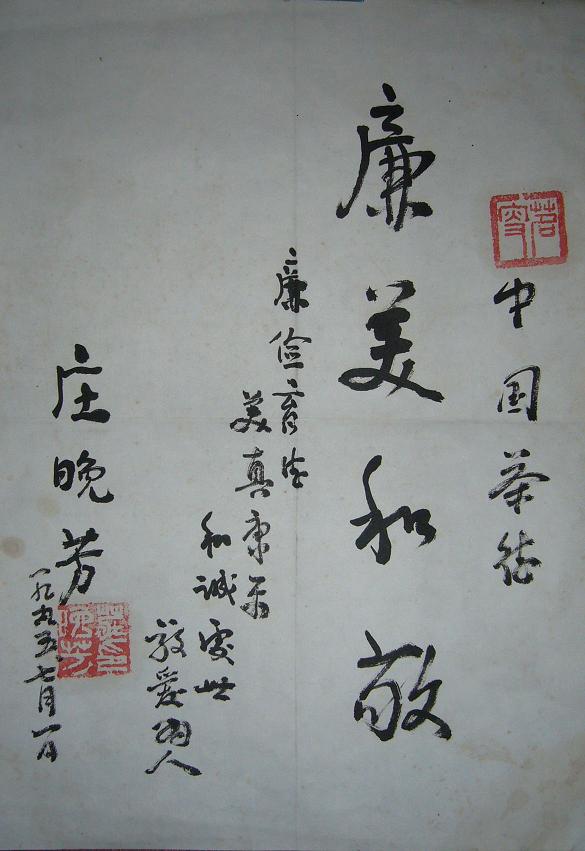 茗叟
中国茶德
廉美和敬
廉俭育德
美真康乐
和誠處世
敬爱為人
庄晚芳
一九九五、七月一日